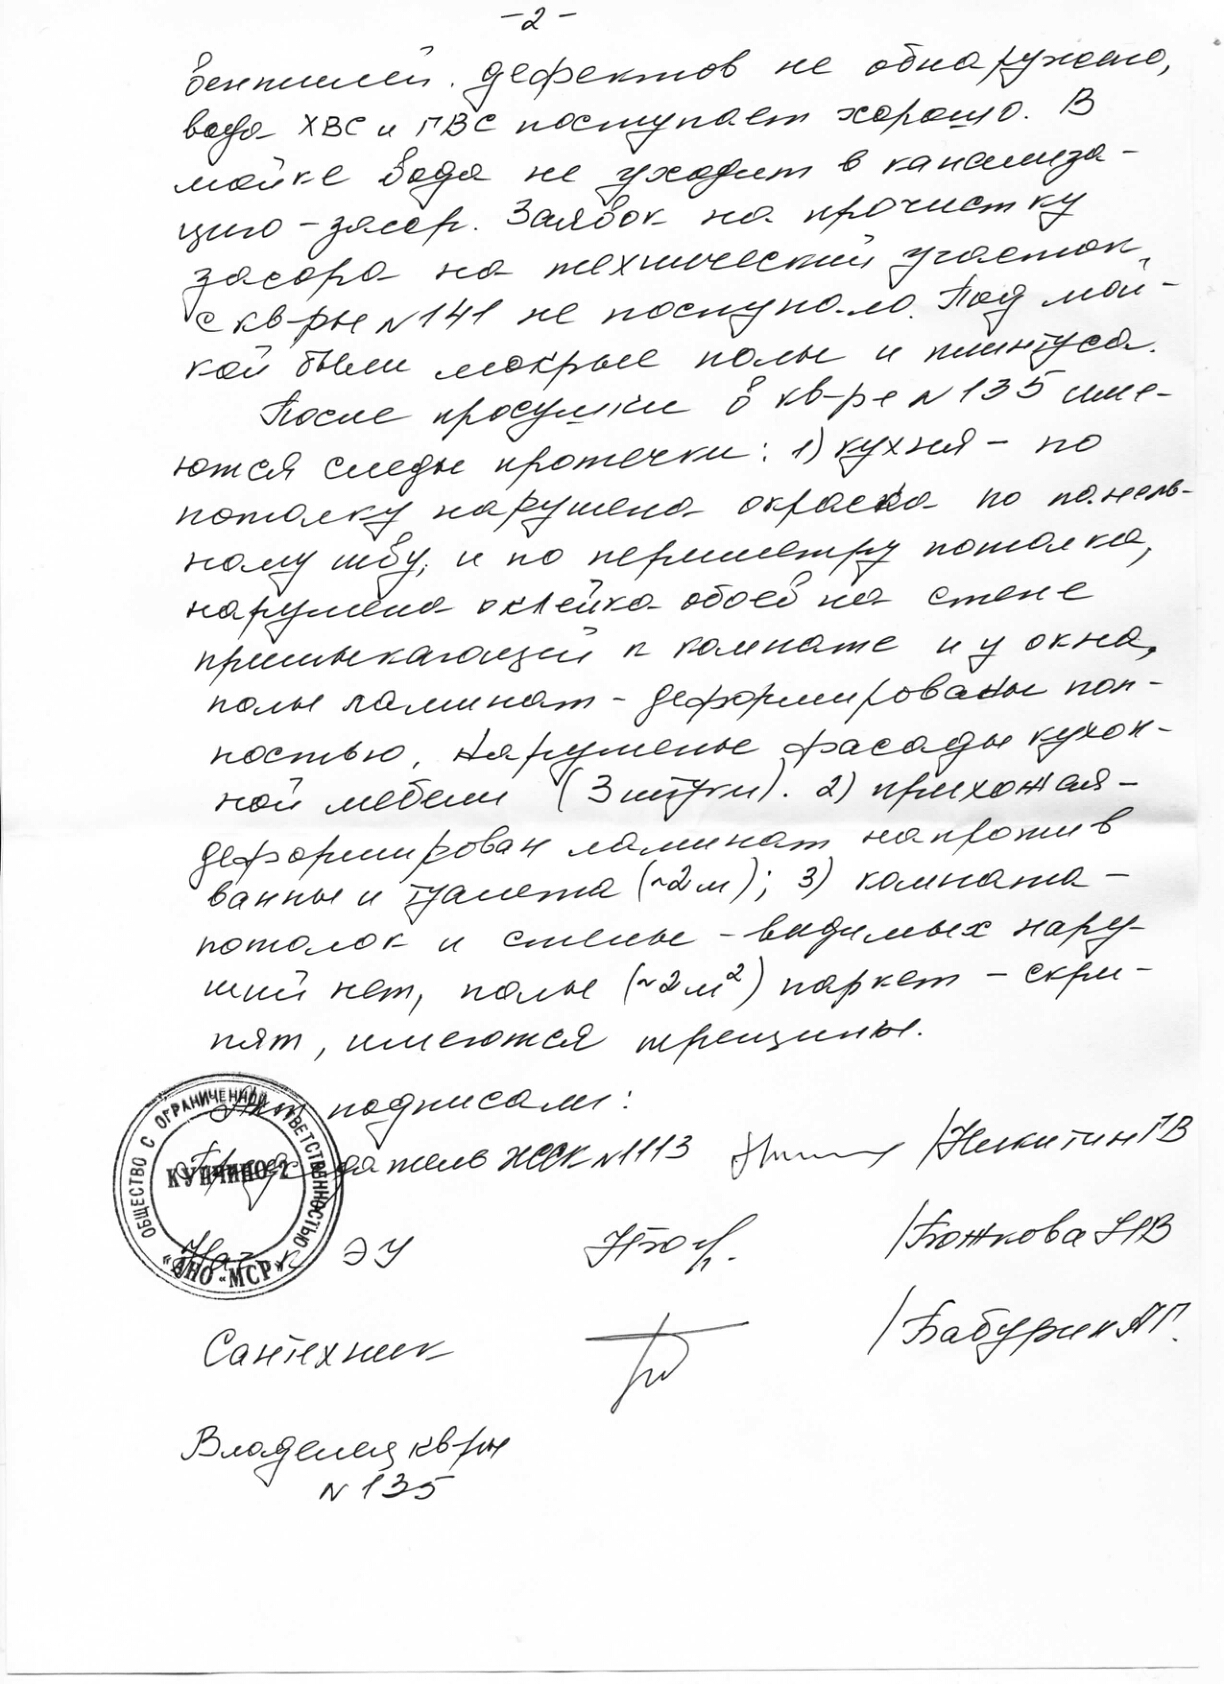 -2-
вентилей. Дефектов не обнаружено,
вода ХВС и ГВС поступает хорошо. В
мойке вода не уходит в канализа-
цию - засор. Заявок на прочистку
засора на технический участок,
с кв-ры N141 не поступало. Под мой-
кой были мокрые полы и плинтуса.
После просушки в кв-ре N135 име-
ются следы протечки: 1) кухня - по
потолку нарушена окраска по панель-
ному шву, и по периметру потолка,
нарушена оклейка обоев на стене
примыкающей к комнате и у окна,
полы ламинат - деформированы пол-
ностью, нарушены фасады кухон-
ной мебели (3 штуки). 2) прихожая-
деформирован ламинат напротив
ванны и туалета (~2м); 3) комната-
потолок и стены - видимых нару-
ший нет, полы (~2м²) паркет - скри-
пят, имеются трещины.
Акт подписали:
Председатель ЖСК N1113 /Никитин ГВ
Нач-к ЭУ /Божкова НВ
Сантехник /Бабурин АГ.
Владелец кв-ры
N135
ОБЩЕСТВО С ОГРАНИЧЕННОЙ ОТВЕТСТВЕННОСТЬЮ
КУПЧИНО-2